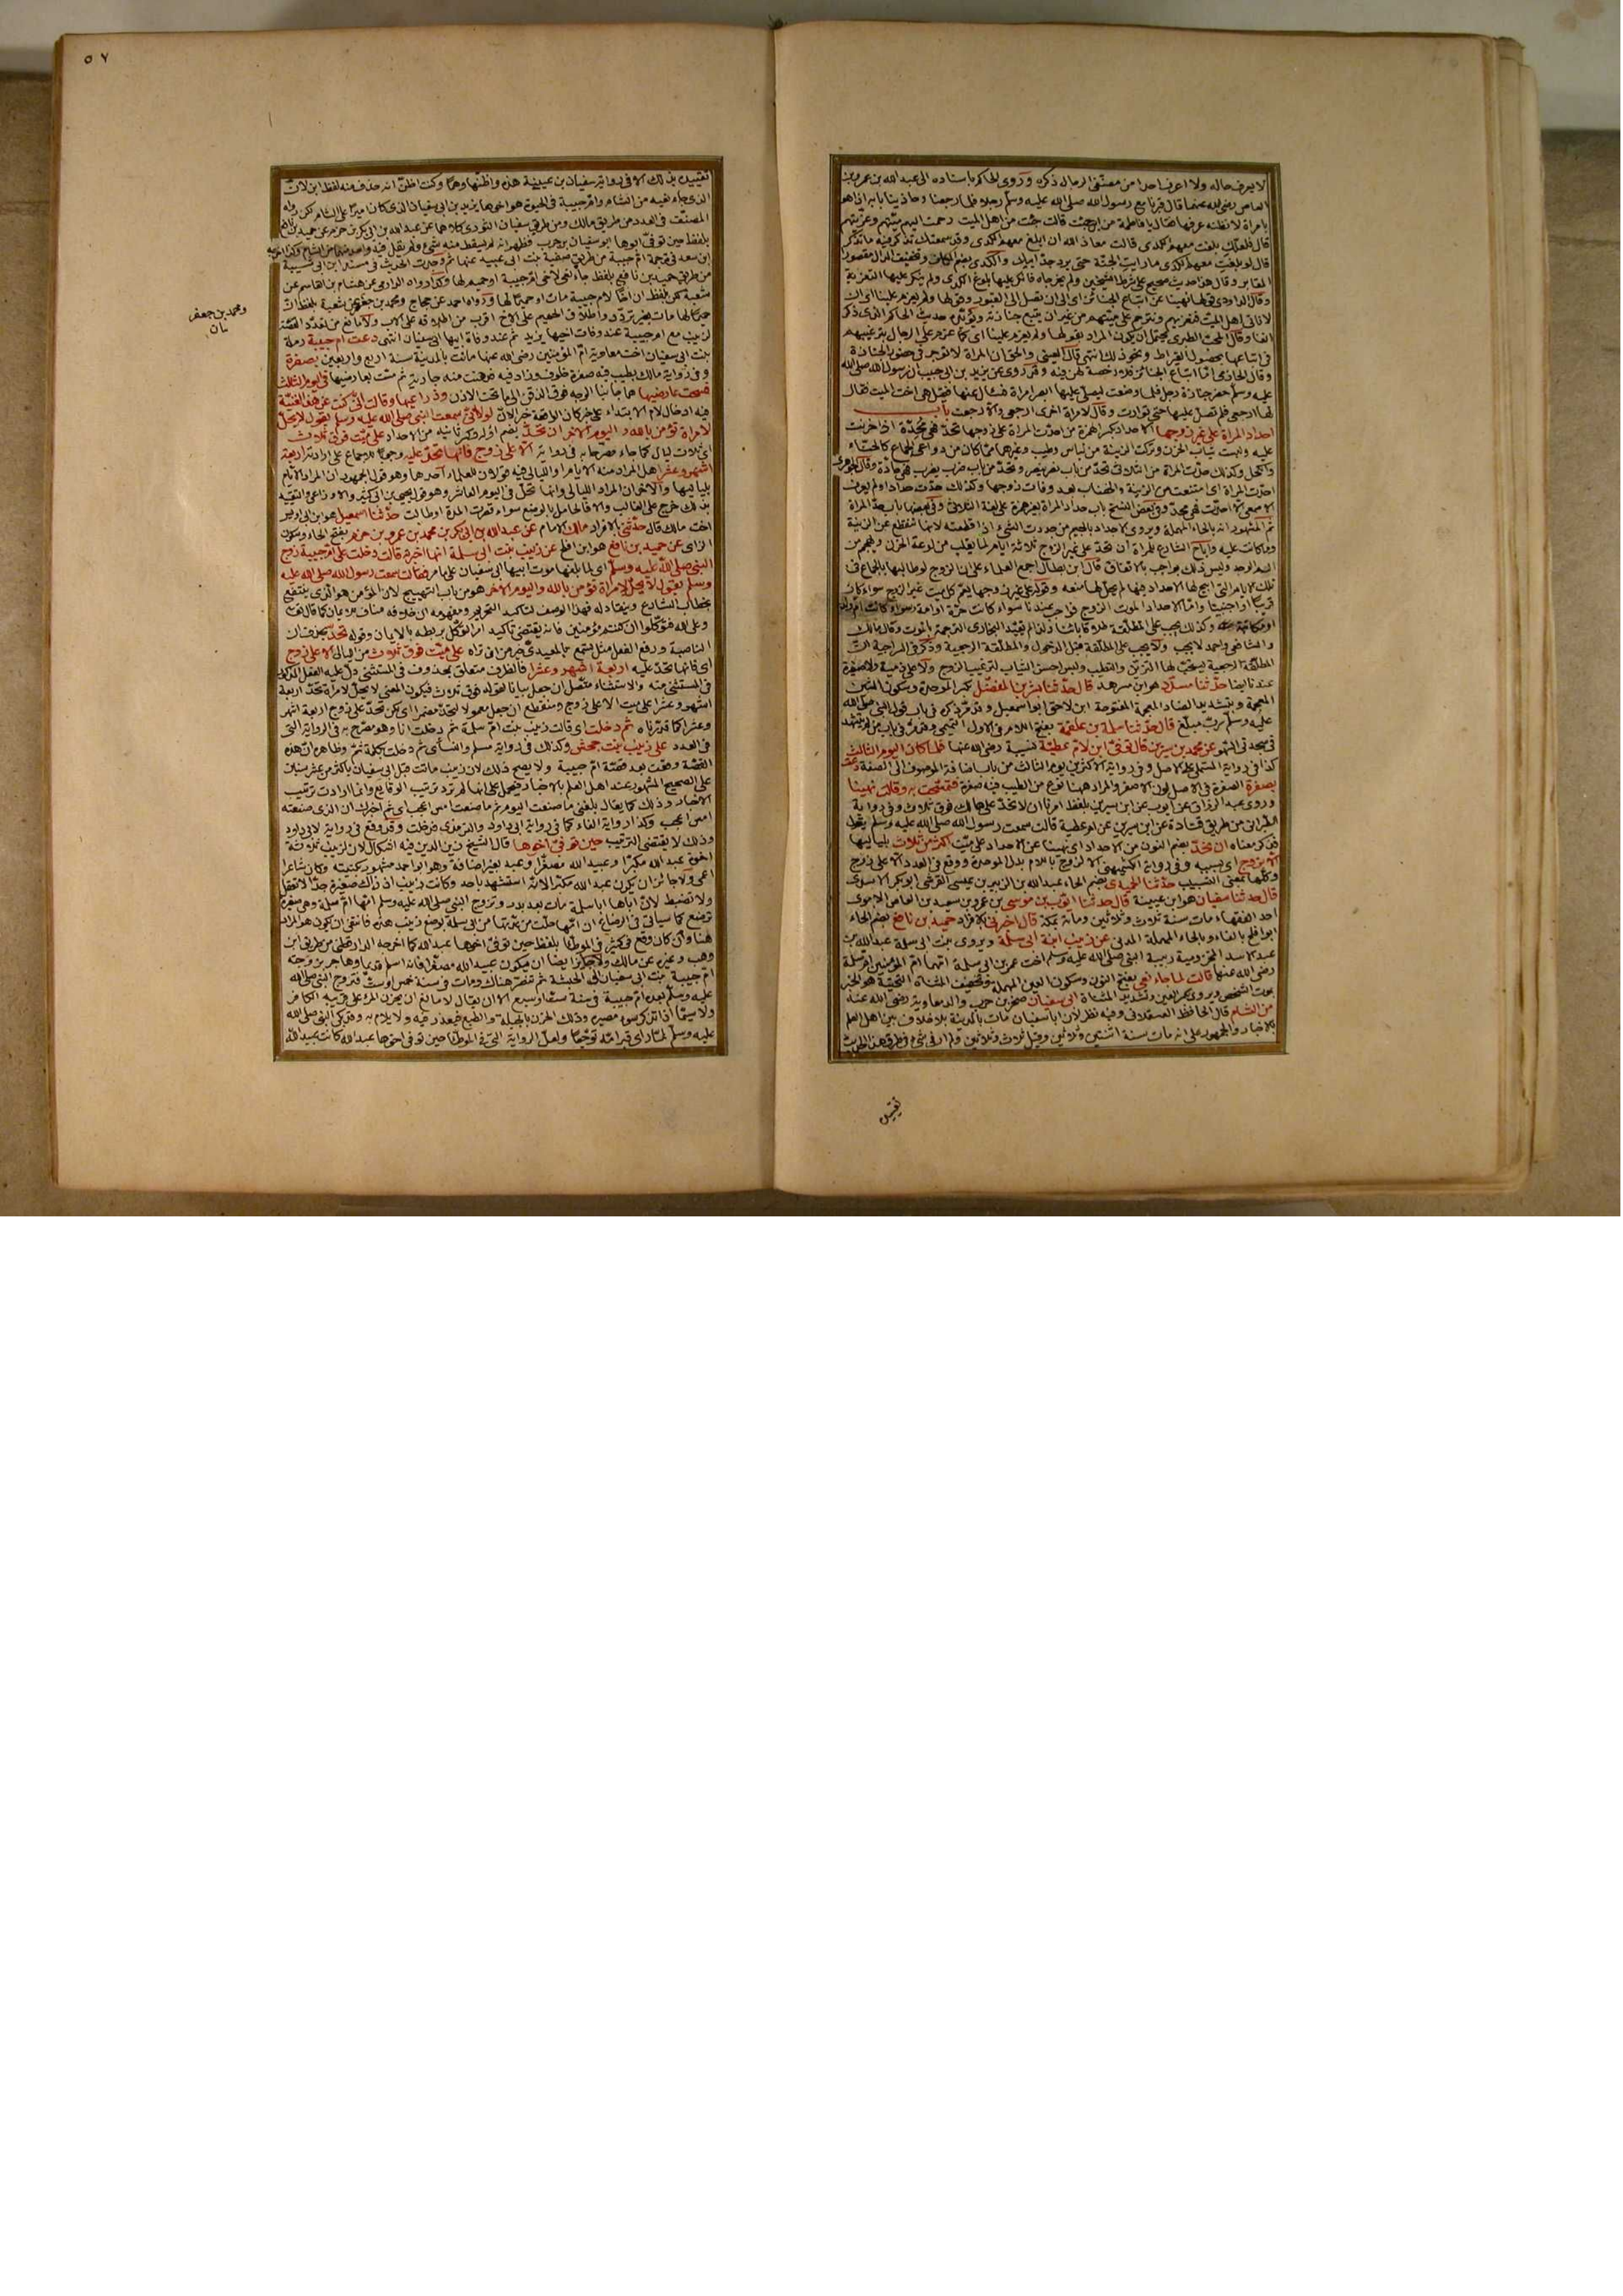 لا يعرف حاله ولا اعرف احدا من مصنفى الرجال ذكره وروى الحاكم باسناده الى عبد الله بن عمرو بن
العاص رضى الله عنهما قال قبرنا مع رسول الله صلى الله عليه وسلم رجلا فلما رجعنا وحاذينا بابه اذا هو
بامرأة لا نظنه عرفها فقال يا فاطمة من اين جئت قالت جئت من اهل الميت رحمت اليهم ميتهم وعزيتهم
قال فلعلك بلغت معهم الكدى قالت معاذ الله ان ابلغ معهم الكدى وقد سمعتك تذكر فيه ما تذكر
قال لو بلغت معهم الكدى ما رايت الجنة حتى يرى جد ابيك والكدى بضم الكاف وتخفيف الدال مقصورا
المقابر وقال هذا حديث صحيح على شرط الشيخين ولم يخرجاه فانكر عليها بلوغ الكدى ولم ينكر عليها التعزية
وقال الداودى قولها نهينا عن اتباع الجنائز اى الى ان نصل الى القبور وقولها ولم يعزم علينا اى ان
لا ناتى اهل الميت فنعزيهم ونترحم على ميتهم من غير ان نتبع جنازته ويؤيده حديث الحاكم الذى ذكر
انفا وقال المحب الطبرى يحتمل ان يكون المراد بقولها ولم يعزم علينا اى كما عزم على الرجال بترغيبهم
فى اتباعها بحصول القيراط ونحو ذلك انتهى قال العينى والحق ان المراة لا تؤجر فى حضور الجنازة
وقال الحازمى اما اتباع الجنائز فلا رخصة لهن فيه وقد روى عن يزيد بن ابى حبيب ان رسول الله صلى الله
عليه وسلم حضر جنازة رجل فلما وضعت ليصلى عليها ابصر امراة فسال عنها فقيل هى اخت الميت فقال
لها ارجعى فلم تصل عليها حتى توارت وقال لامراة اخرى ارجعى والا رجعت باب
احداد المرأة على غير زوجها الاحداد بكسر الهمزة من احدت المراة على زوجها تحد فهى محدة اذا حزنت
عليه ولبست ثياب الحزن وتركت الزينة من لباس وطيب وغيرهما مما كان من دواعى الجماع كالحناء
والكحل وكذلك حدت المراة من الثلاثى تحد من باب نصر ينصر وتحد من باب ضرب يضرب فهى حادة وقال الجوهرى
احدت المراة اى امتنعت من الزينة والخضاب بعد وفات زوجها وكذلك حدت حدادا ولم يعرف
الاصمعى الا احدت فهى محد وفى بعض النسخ باب حداد المراة بغير همزة على لغة الثلاثى وفى بعضها باب حد المراة
ثم المشهور انه بالحاء المهملة ويروى الاجداد بالجيم من جددت الشئ اذا قطعته لانها تنقطع عن الزينة
وما كانت عليه واباح الشارع للمراة ان تحد على غير الزوج ثلاثة ايام لما يغلب من لوعة الحزن ويهجم من
اليم الوجد وليس ذلك بواجب بالاتفاق قال ابن بطال اجمع العلماء على ان الزوج لو طالبها بالجماع فى
تلك الايام التى ابيح لها الاحداد فيها لم يحل لها منعه وقوله على غير زوجها يعم كل ميت غير الزوج سواء كان
قريبا او اجنبيا واما الاحداد لموت الزوج فواجب عندنا سواء كانت حرة او امة
وكذلك يجب على المطلقة طلاقا بائنا ولم يقيد البخارى الترجمة بالموت وقال مالك
والشافعى واحمد لا يجب ولا يجب على المطلقة قبل الدخول والمطلقة الرجعية وذكر فى السراجية ان
المطلقة الرجعية يستحب لها التزين والتطيب ولبس احسن الثياب لترغيب الزوج ولا على ذمية ولا صغيرة
عندنا ايضا حدثنا مسدد هو ابن مسرهد قال حدثنا بشر بن المفضل بكسر الموحدة وسكون الشين
المعجمة وبتشديد الضاد المعجمة المفتوحة ابن لاحق ابو اسمعيل وقد مر ذكره فى باب قول النبى صلى الله
عليه وسلم رب مبلغ قال حدثنا سلمة بن علقمة بفتح اللام فى الاول التميمى وقد مر فى باب من لم يتشهد
فى سجدتى السهو عن محمد بن سيرين قال توفى ابن لام عطية نسيبة رضى الله عنها فلما كان اليوم الثالث
كذا فى رواية المستملى على الاصل وفى رواية الاكثرين يوم الثالث من باب اضافة الموصوف الى الصفة دعت
بصفرة الصفرة فى الاصل لون الاصفر والمراد ههنا نوع من الطيب فيه صفرة فتمسحت به وقالت نهينا
وروى عبد الرزاق عن ايوب عن ابن سيرين بلفظ امرنا ان لا نحد على هالك فوق ثلاث وفى رواية
الطبرانى من طريق قتادة عن ابن سيرين عن ام عطية قالت سمعت رسول الله صلى الله عليه وسلم يقول
فذكر معناه ان نحد بضم النون من الاحداد اى نهينا عن الاحداد على ميت اكثر من ثلاث بلياليها
الا بزوج اى بسببه وفى رواية الكشميهنى الا لزوج باللام بدل الموحدة ووقع فى العدد الا على زوج
وكلها بمعنى التسبيب حدثنا الحميدى بضم الحاء عبد الله بن الزبير بن عيسى القرشى ابو بكر الاسدى
قال حدثنا سفيان هو ابن عيينة قال حدثنا ايوب بن موسى بن عمرو بن سعيد بن العاص الاموى
احد الفقهاء مات سنة ثلاث وثلاثين ومائة بمكة قال اخبرنى بالافراد حميد بن نافع بضم الحاء
ابو افلح بالفاء وبالحاء المهملة المدنى عن زينب ابنة ابى سلمة ويروى بنت ابى سلمة عبد الله بن
عبد الاسد المخزومية ربيبة النبى صلى الله عليه وسلم اخت عمر بن ابى سلمة امهما ام المؤمنين ام سلمة
رضى الله عنها قالت لما جاء نعى بفتح النون وسكون العين المهملة وتخفيف المثناة التحتية هو الخبر
بموت الشخص ويروى بكسر العين وتشديد المثناة ابى سفيان صخر بن حرب والد معاوية رضى الله عنه
من الشام قال الحافظ العسقلانى وفيه نظر لان ابا سفيان مات بالمدينة بلا خلاف بين اهل العلم
بالاخبار والجمهور على انه مات سنة اثنتين وثلاثين وقيل ثلاث وثلاثين ولم ار فى شئ من طرق هذا الحديث
تقييد
٥٧
تقييده بذلك الا فى رواية سفيان بن عيينة هذه واظنها وهما وكنت اظن انه حذف منه لفظ ابن لان
الذى جاء نعيه من الشام وام حبيبة فى الحيوة هو اخوها يزيد بن ابى سفيان الذى كان اميرا على الشام لكن رواه
المصنف فى العدد من طريق مالك ومن طريق سفيان الثورى كلاهما عن عبد الله بن ابى بكر بن حزم عن حميد بن نافع
بلفظ حين توفى ابوها ابو سفيان بن حرب فظهر انه لم يسقط منه شئ ولم يقل فيه واحد منهما من الشام وكذا اخرجه
ابن سعد فى ترجمة ام حبيبة من طريق صفية بنت ابى عبيد عنها ثم وجدت الحديث فى مسند ابن ابى شيبة
من طريق حميد بن نافع بلفظ جاء نعى لاخى ام حبيبة او حميم لها وكذا رواه الدارمى عن هشام بن القاسم عن
شعبة لكن بلفظ ان اخا لام حبيبة مات او حميما لها ورواه احمد عن حجاج ومحمد بن جعفر عن شعبة بلفظ ان
حميما لها مات بغير تردد واطلاق الحميم على الاخ اقرب من اطلاقه على الاب ولا مانع من تعدد القصة
لزينب مع ام حبيبة عند وفات اخيها يزيد ثم عند وفاة ابيها ابى سفيان انتهى دعت ام حبيبة رملة
بنت ابى سفيان اخت معاوية ام المؤمنين رضى الله عنها ماتت بالمدينة سنة اربع واربعين بصفرة
وفى رواية مالك بطيب فيه صفرة خلوف وزاد فيه فدهنت منه جارية ثم مست بعارضيها فى اليوم الثالث
فمسحت عارضيها هما جانبا الوجه فوق الذقن الى ما تحت الاذن وذراعيها وقالت انى كنت عن هذا لغنية
فيه ادخال لام الابتداء على خبر كان الواقعة خبر الان لولا انى سمعت النبى صلى الله عليه وسلم يقول لا يحل
لامراة تؤمن بالله واليوم الآخر ان تحد بضم اوله وكسر ثانيه من الاحداد على ميت فوق ثلاث
اى ثلاث ليال كما جاء مصرحا به فى رواية الا على زوج فانها تحد عليه وجوبا للاجماع على ارادته اربعة
اشهر وعشرا هل المراد منه الايام او الليالى فيه قولان للعلماء احدهما وهو قول الجمهور ان المراد الايام
بلياليها والآخر ان المراد الليالى وانها تحل فى اليوم العاشر وهو قول يحيى بن ابى كثير والاوزاعى والتقييد
بذلك خرج على الغالب والا فالحامل بالوضع سواء قصرت المدة او طالت حدثنا اسمعيل هو ابن ابى اويس
اخت مالك قال حدثنى بالافراد مالك الامام عن عبد الله بن ابى بكر بن محمد بن عمرو بن حزم بفتح الحاء وسكون
الزاى عن حميد بن نافع هو ابن افلح عن زينب بنت ابى سلمة انها اخبرته قالت دخلت على ام حبيبة زوج
النبى صلى الله عليه وسلم اى لما بلغها موت ابيها ابى سفيان على ما مر فقالت سمعت رسول الله صلى الله عليه
وسلم يقول لا يحل لامراة تؤمن بالله واليوم الآخر هو من باب التهييج لان المؤمن هو الذى ينتفع
بخطاب الشارع وينقاد له فهذا الوصف لتاكيد التحريم ومفهومه ان خلافه مناف للايمان كما قال تعالى
وعلى الله فتوكلوا ان كنتم مؤمنين فانه يقتضى تاكيد امر التوكل بربطه بالايمان وقوله تحد بحذف ان
الناصبة ورفع الفعل مثل تسمع بالمعيدى خير من ان تراه على ميت فوق ثلاث من الليالى الا على زوج
اى فانها تحد عليه اربعة اشهر وعشرا فالظرف متعلق بمحذوف فى المستثنى دل عليه الفعل المذكور
فى المستثنى منه والاستثناء متصل ان جعل بيانا لقوله فوق ثلاث فيكون المعنى لا يحل لامراة تحد اربعة
اشهر وعشرا على ميت الا على زوج ومنقطع ان جعل معمولا لتحد مضمرا اى لكن تحد على زوج اربعة اشهر
وعشرا كما قدرناه ثم دخلت اى قالت زينب بنت ام سلمة ثم دخلت انا وهو مصرح به فى الرواية التى
فى العدد على زينب بنت جحش وكذلك فى رواية مسلم والنسائى ثم دخلت بكلمة ثم وظاهره ان هذه
القصة وقعت بعد قصة ام حبيبة ولا يصح ذلك لان زينب ماتت قبل ابى سفيان باكثر من عشر سنين
على الصحيح المشهور عند اهل العلم بالاخبار فيحمل على انها لم ترد ترتيب الوقائع وانما ارادت ترتيب
الاخبار وذلك كما يقال بلغنى ما صنعت اليوم ثم ما صنعت امس اعجب اى ثم اخبرك ان الذى صنعته
امس اعجب وكذا رواية الفاء كما فى رواية ابى داود والترمذى فدخلت وقد وقع فى رواية لابى داود
وذلك لا يقتضى الترتيب حين توفى اخوها قال الشيخ زين الدين فيه اشكال لان لزينب ثلاثة
اخوة عبد الله مكبرا وعبيد الله مصغرا وعبد بغير اضافة وهو ابو احمد مشهور بكنيته وكان شاعرا
اعمى ولا جائز ان يكون عبد الله مكبرا لانه استشهد باحد وكانت زينب اذ ذاك صغيرة جدا لا تعقل
ولا تضبط لان اباها ابا سلمة مات بعد بدر وتزوج النبى صلى الله عليه وسلم امها ام سلمة وهى صغيرة
ترضع كما سياتى فى الرضاع ان امها حلت من عدتها من ابى سلمة بوضع زينب هذه فانتفى ان يكون هو المراد
هنا وان كان وقع فى كثير فى الموطآ بلفظ حين توفى اخوها عبد الله كما اخرجه الدارقطنى من طريق ابن
وهب وغيره عن مالك ولا جائز ايضا ان يكون عبيد الله مصغرا فانه اسلم قديما وهاجر بزوجته
ام حبيبة بنت ابى سفيان الى الحبشة ثم تنصر هناك ومات فى سنة خمس او ست فتزوج النبى صلى الله
عليه وسلم بعده ام حبيبة فى سنة ست او سبع الا ان يقال لا مانع ان يحزن المرء على قريبه الكافر
ولا سيما اذا تذكر سوء مصيره وذلك الحزن بالجبلة والطبع فيعذر فيه ولا يلام به وقد بكى النبى صلى الله
عليه وسلم لما راى قبر امه توجعا ولعل الرواية التى فى الموطآ حين توفى اخوها عبد الله كانت عبيد الله
ومحمد بن جعفر